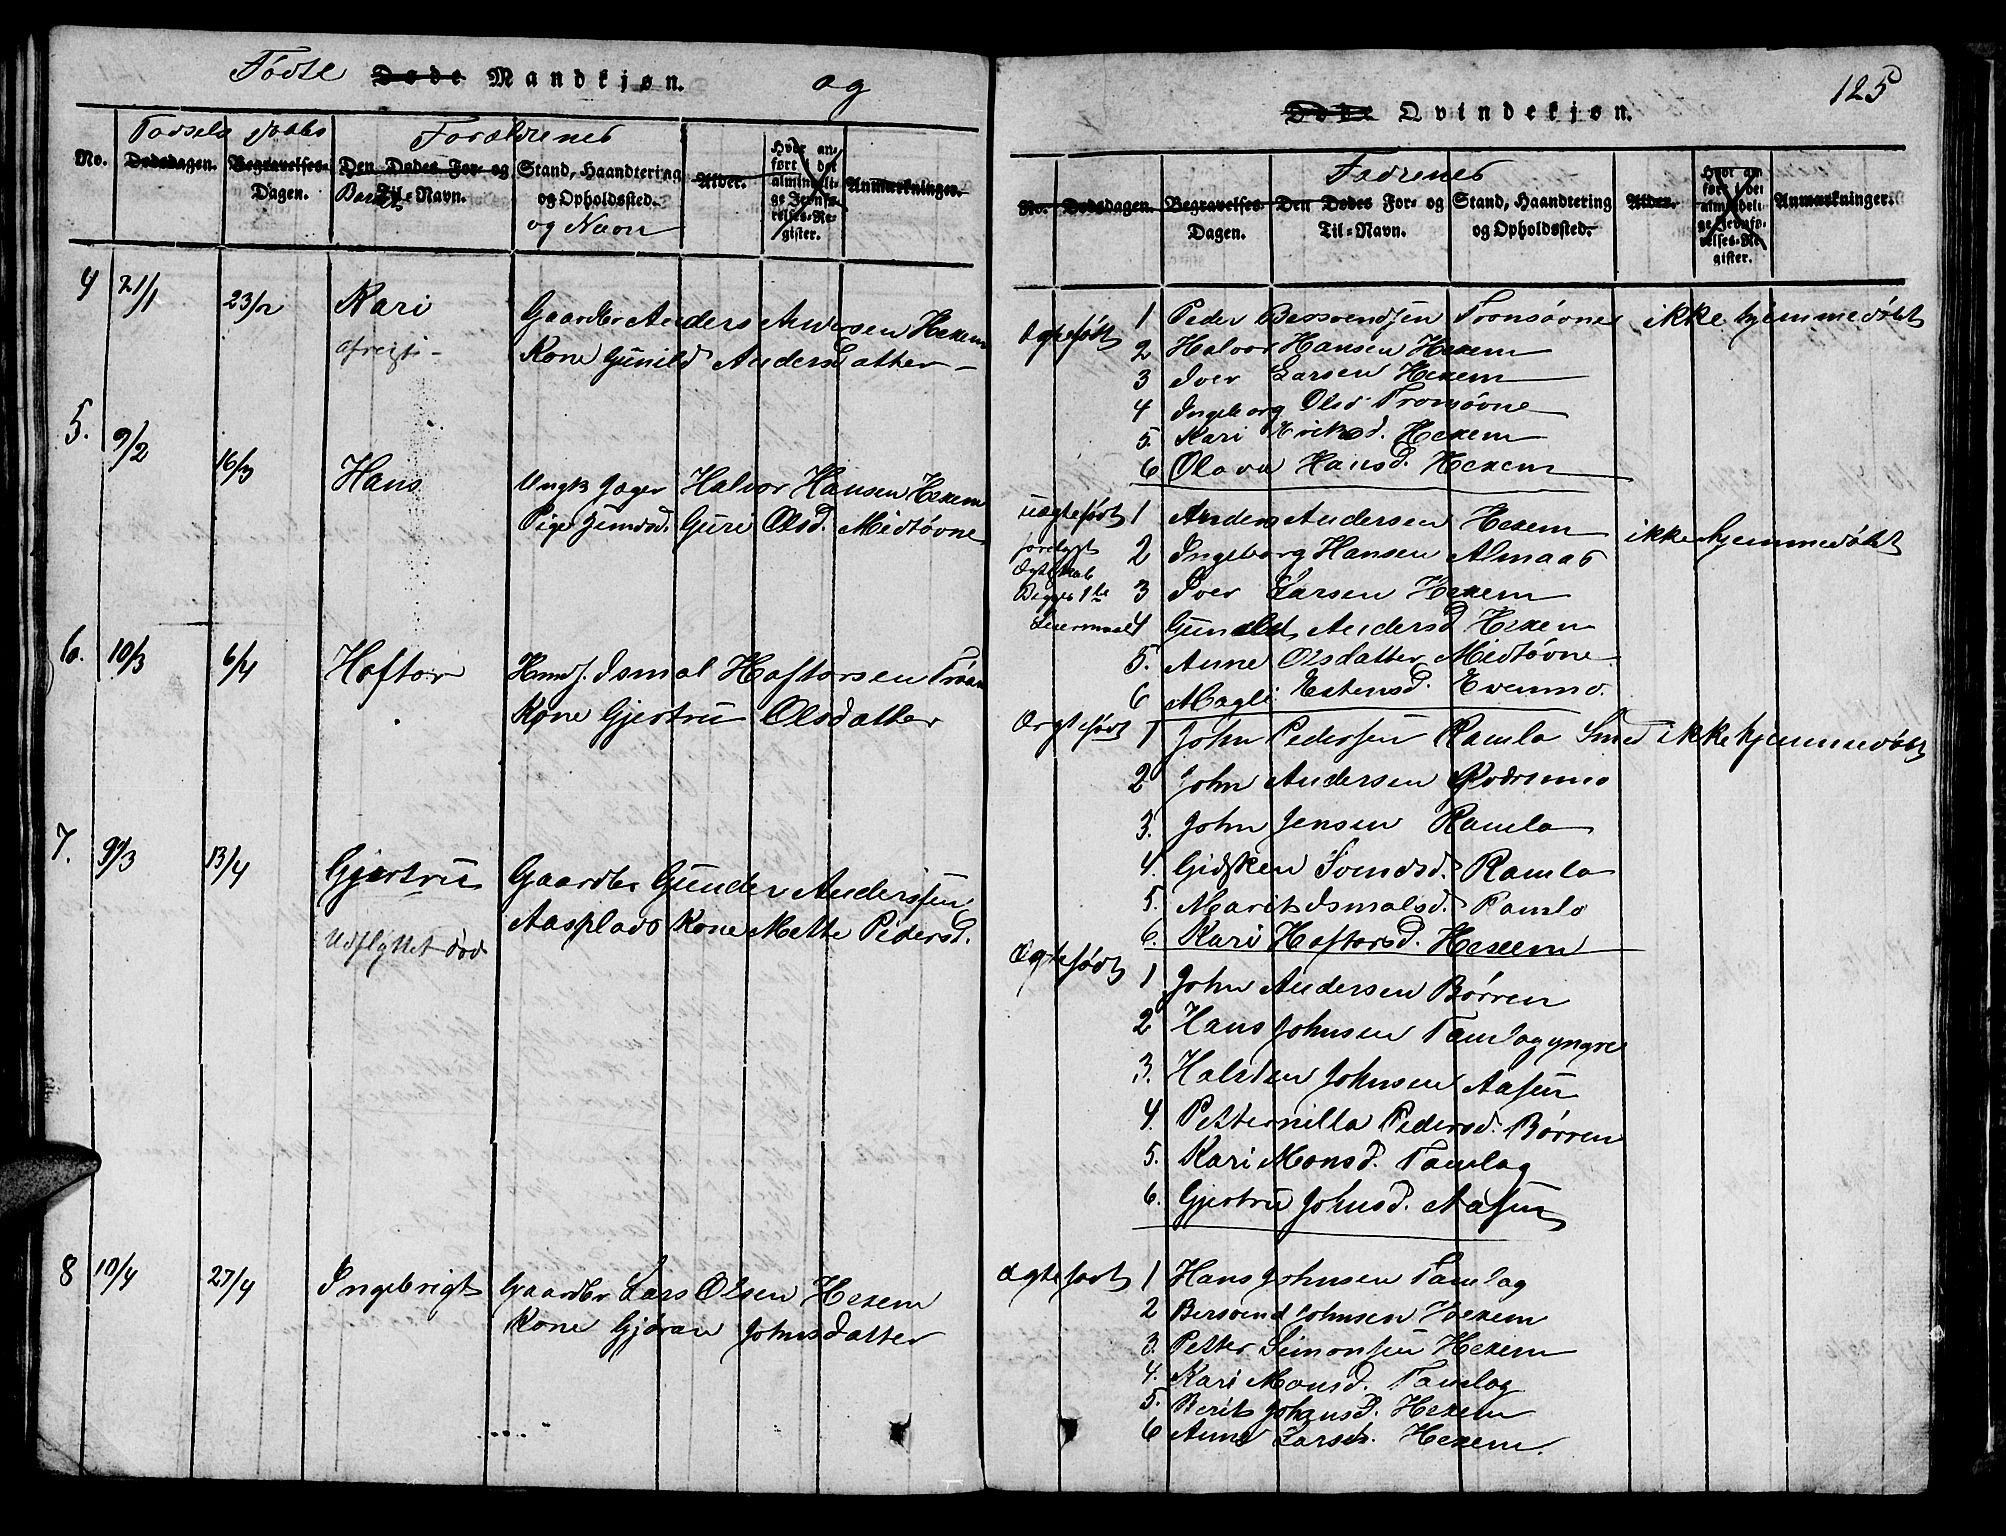 Fødte Døde Mandkjøn. og
Fødsels Daabs Forældrenes
No. Dødsdagen. Begravelses- Dagen. Den Dødes For- og Til-Navn. Stand, Haandtering og Opholdssted. Alder. Hvor anført i det almindelige Jevnførelses-Register. Anmærkninger.
Barnets
og Navn
4 21/1 23/2 Kari Gaardbr Anders Andersen Hexem
afreist - Kone Gunild Andersdatter -
5. 9/2 16/3 Hans Ungk Jæger Halvor Hansen Hexem
Pige Guri Olsd. Midtøvne
6. 10/3 6/4 Haftor Huusm. Ismal Haftorsen
Kone Gjertru Olsdatter
7. 9/3 13/4 Gjertru Gaardbr Gunder Anderssen
Aasplads Kone Mette Pedersd.
Udflyttet død
8 10/4 27/4 Ingebrigt Gaardbr Lars Olsen Hexem
Kone Gjøran Johnsdatter
125
Døde Qvindekjøn.
Fadrenes
No. Dødsdagen. Begravelses- Dagen. Den Dødes For- og Til-Navn. Stand, Haandtering og Opholdssted. Alder. Hvor anført i det almindelige Jevnførelses-Register. Anmærkninger.
Ægtefødt 1 Peder Bersvendsen Tronsøvne ikke hjemmedøbt
2 Halvor Hansen Hexem
3 Iver Larsen Hexem
4 Ingeborg Olsd Tronsøvne
5. Kari Eriksd. Hexem
6 Olava Hansd. Hexem
uægtefødt 1 Anders Andersen Hexem ikke hjemmedøbt
forelygt 2 Ingeborg Hansen Almaas
Ægteskab
Begges 1te 3 Iver Larsen Hexem
Leiermaal 4 Gunild Andersd Hexem
5. Anne Olsdatter Midtøvne
6 Magli Estensd. Evenmo.
Ægtefødt 1 John Pedersen Ramlo Smed ikke hjemmedøbt
2 John Andersen Rodrsmo
3. John Jensen Ramlo
4. Gidsken Svendsd. Ramlo
5. Marit Ismalsd. Ramlo
6. Kari Haftorsd. Hexem
Ægtefødt 1 John Andersen Børren
2 Hans Johnsen Tamlag yngre
3. Halsten Johnsen Aasen
4. Petternilla Pedersd. Børren
5. Kari Monsd. Tamlag
6. Gjertru Johnsd. Aasen
Ægtefødt 1 Hans Johnsen Tamlag
2 Bersvend Johnsen Hexem
3. Petter Simonsen Hexem
4. Kari Monsd. Tamlag
5. Berit Johansd. Hexem
6 Anne Larsd. Hexem.